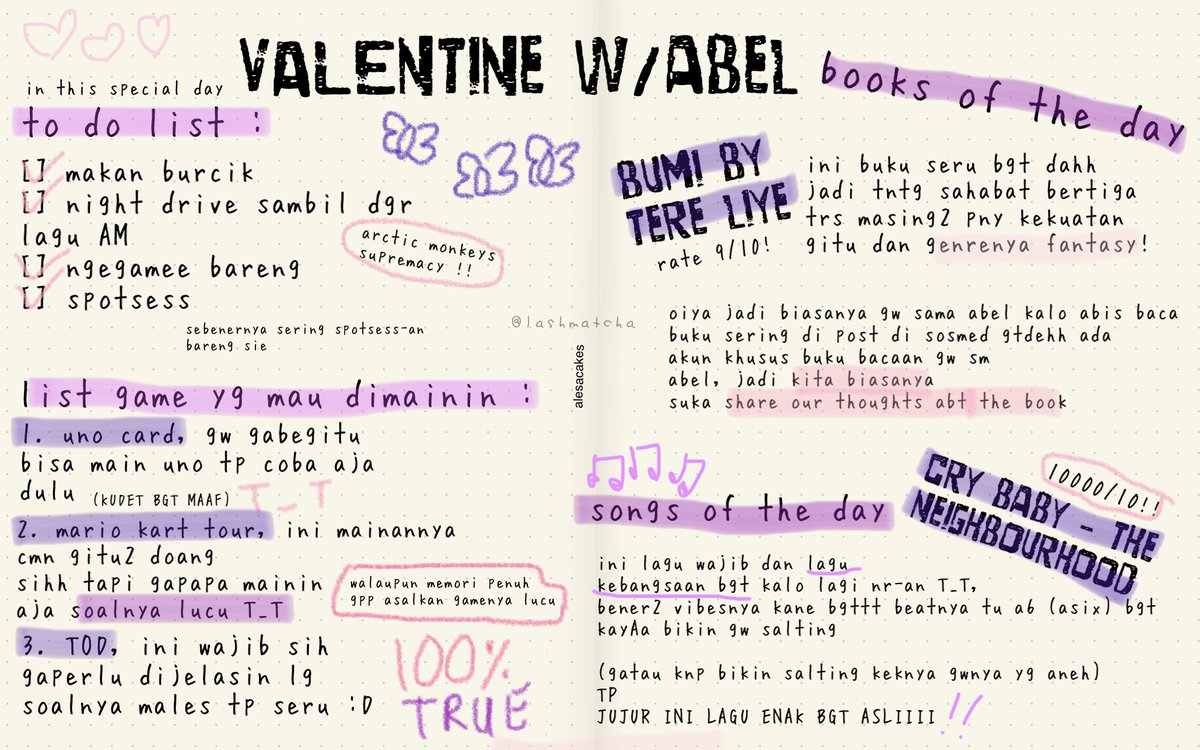 VALENTINE W/ABEL
in this special day
to do list :
[] makan burcik
[] night drive sambil dgr
lagu AM
[] ngegamee bareng
[] spotsess
arctic monkeys
supremacy !!
sebenernya sering spotsess-an
bareng sie
list game yg mau dimainin :
1. uno card, gw gabegitu
bisa main uno tp coba aja
dulu (KUDET BGT MAAF) T_T
2. mario kart tour, ini mainannya
cmn gitu2 doang
sihh tapi gapapa mainin
aja soalnya lucu T_T
walaupun memori penuh
gpp asalkan gamenya lucu
3. TOD, ini wajib sih
gaperlu dijelasin lg
soalnya males tp seru :D
100%
TRUE
@lashmatcha
alesacakes
books of the day
BUMI BY
TERE LIYE
rate 9/10!
ini buku seru bgt dahh
jadi tntg sahabat bertiga
trs masing2 pny kekuatan
gitu dan genrenya fantasy!
oiya jadi biasanya gw sama abel kalo abis baca
buku sering di post di sosmed gtdehh ada
akun khusus buku bacaan gw sm
abel, jadi kita biasanya
suka share our thoughts abt the book
songs of the day
CRY BABY - THE
NEIGHBOURHOOD
10000/10!!
ini lagu wajib dan lagu
kebangsaan bgt kalo lagi nr-an T_T,
bener2 vibesnya kane bgttt beatnya tu ab (asix) bgt
kayAa bikin gw salting
(gatau knp bikin salting keknya gwnya yg aneh)
TP
JUJUR INI LAGU ENAK BGT ASLIIII !!